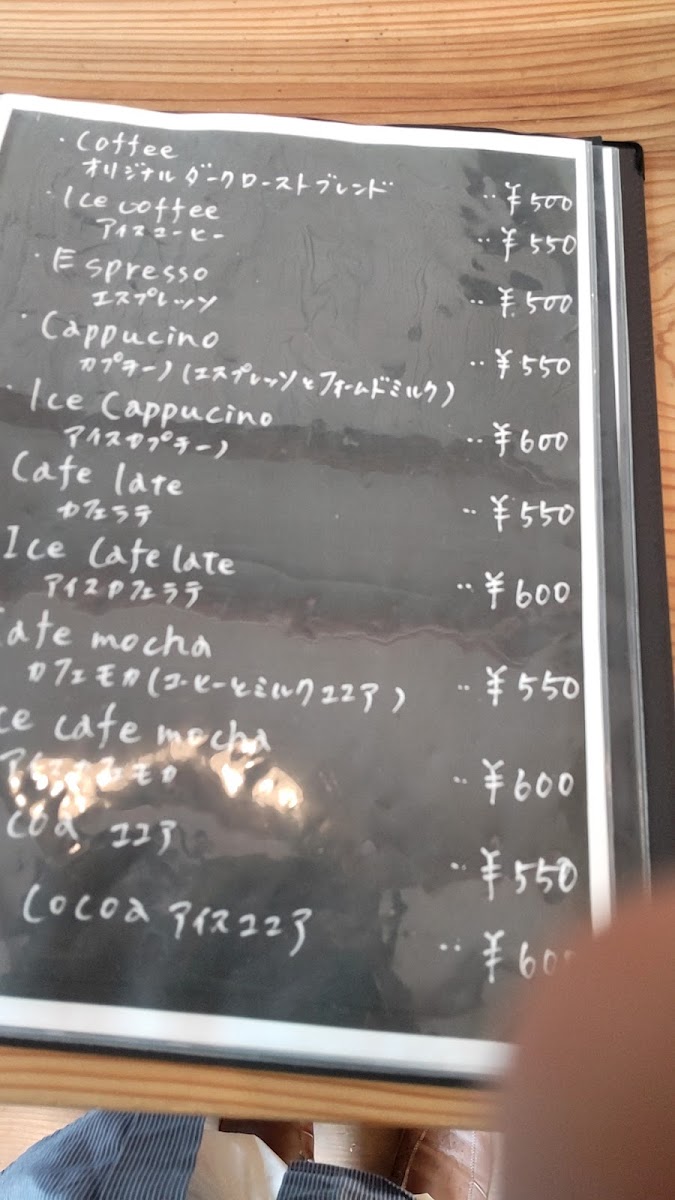 · Coffee
オリジナル ダークローストブレンド ‥ ¥500
· Ice coffee
アイスコーヒー ‥ ¥550
· Espresso
エスプレッソ ‥ ¥500
· Cappucino
カプチーノ(エスプレッソとフォームドミルク) ‥ ¥550
· Ice Cappucino
アイスカプチーノ ‥ ¥600
Cafe late
カフェラテ ‥ ¥550
Ice Cafe late
アイスカフェラテ ‥ ¥600
afe mocha
カフェモカ(コーヒーとミルクココア) ‥ ¥550
ce cafe mocha
‥ ¥600
coa ココア ‥ ¥550
Cocoa アイスココア ‥ ¥60